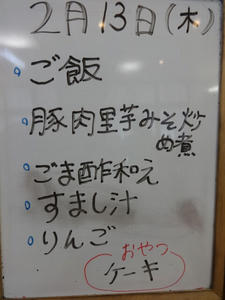 2月13日(木)
ご飯
豚肉里芋みそ炒
め煮
ごま酢和え
すまし汁
りんご
おやつ
ケーキ